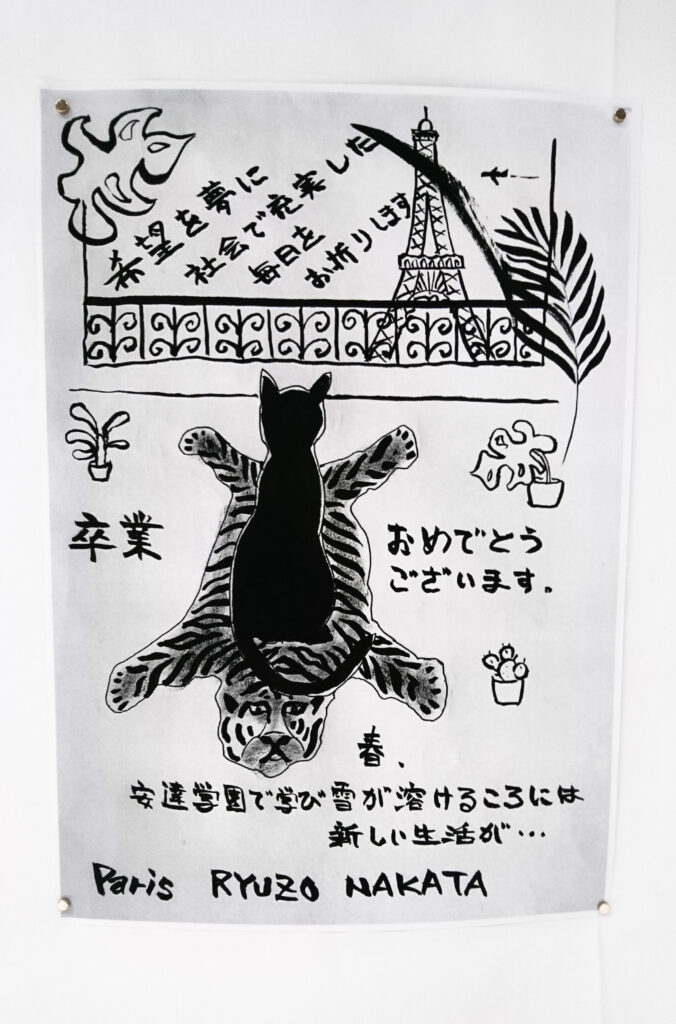 希望を夢に
社会で充実した
毎日を
お祈りします
卒業
おめでとう
ございます。
春、
安達学園で学び雪が溶けるころには
新しい生活が…
Paris RYUZO NAKATA